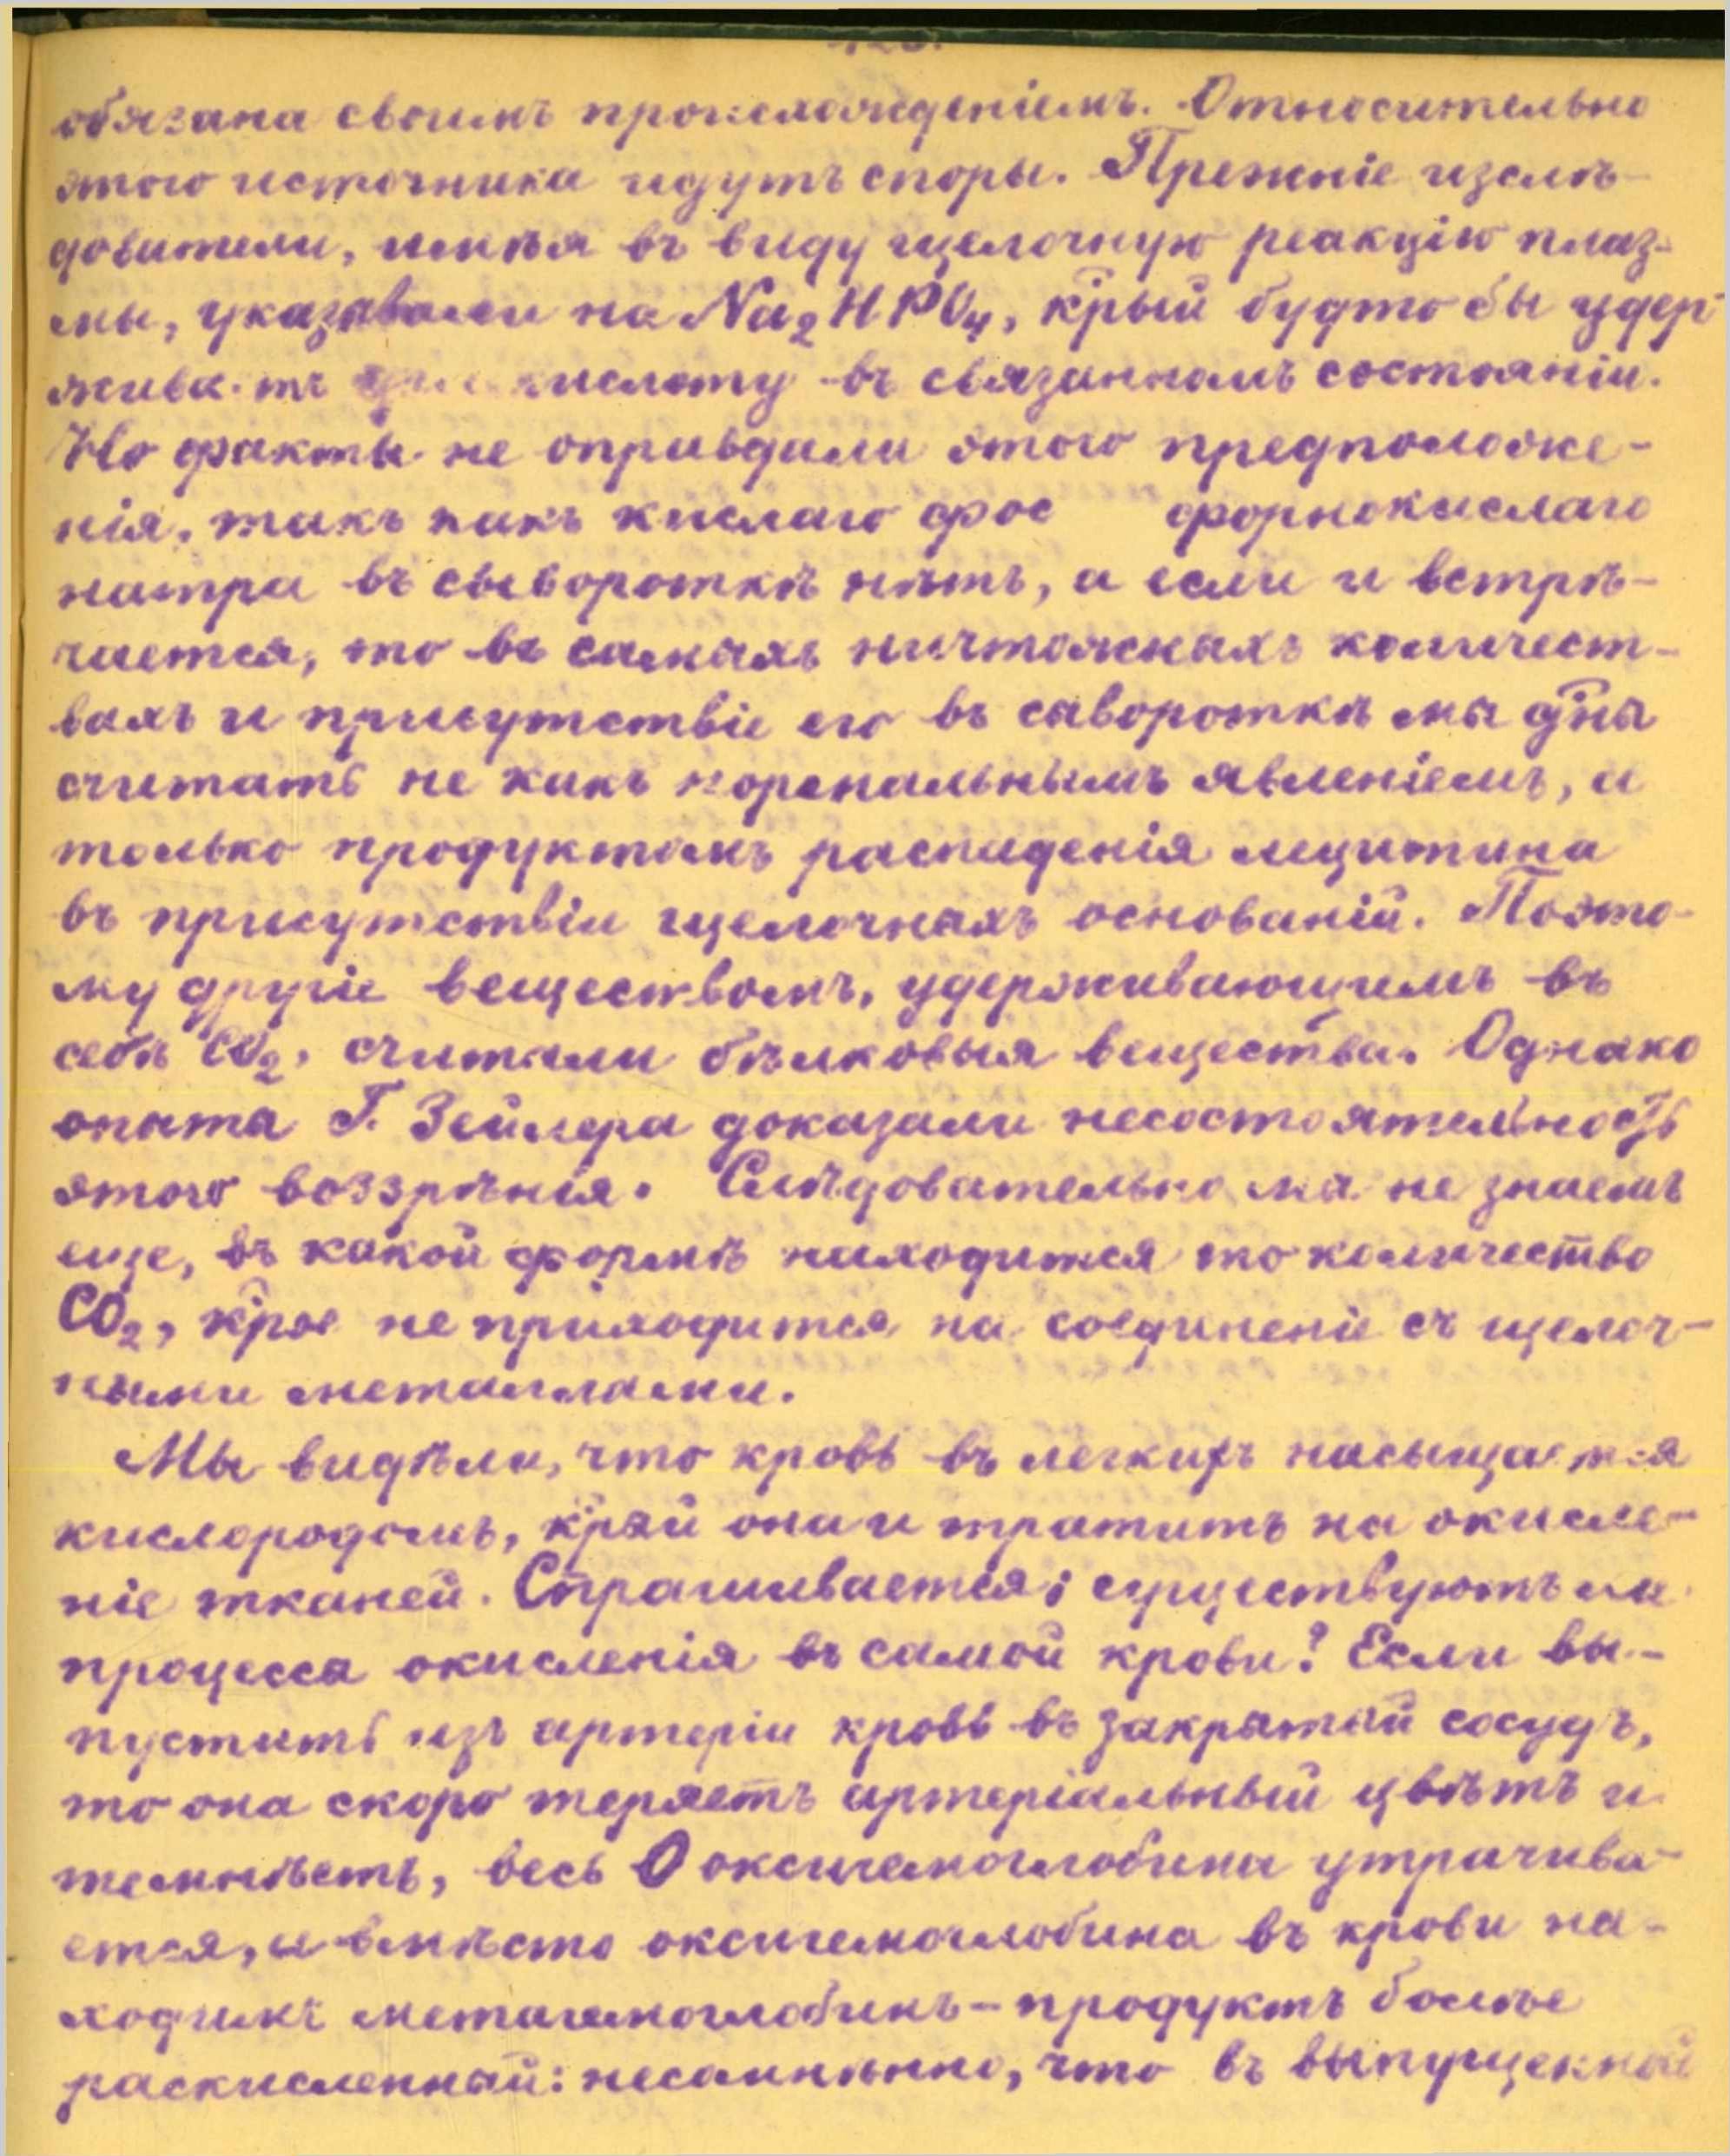 обязана своимъ происхожденіемъ. Относительно
этого источника идутъ споры. Прежніе изслѣ-
дователи, имѣя въ виду щелочную реакцію плаз-
мы, указывали на Na₂HPO₄, к̑рый будто бы удер-
живаетъ кислоту въ связанномъ состояніи.
Но факты не оправдали этого предположе-
нія, такъ какъ кислаго фос форнокислаго
натра въ сывороткѣ нѣтъ, а если и встрѣ-
чается, то въ самыхъ ничтожныхъ количест-
вахъ и присутствіе его въ сывороткѣ мы д̑ны
считать не какъ нормальнымъ явленіемъ, а
только продуктомъ распаденія лецитина
въ присутствіи щелочныхъ основаній. Поэто-
му другіе веществомъ, удерживающимъ въ
себѣ CO₂, считали бѣлковыя вещества. Однако
опыты Г. Зейлера доказали несостоятельность
этого воззрѣнія. Слѣдовательно мы не знаемъ
еще, въ какой формѣ находится то количество
CO₂, к̑рое не приходится на соединеніе съ щелоч-
ными металлами.
Мы видѣли, что кровь въ легкихъ насыщается
кислородомъ, к̑рый она и тратитъ на окисле-
ніе тканей. Спрашивается: существуютъ ли
процессы окисленія въ самой крови? Если вы-
пустить изъ артеріи кровь въ закрытый сосудъ,
то она скоро теряетъ артеріальный цвѣтъ и
темнѣетъ, весь О оксигемоглобина утрачива-
ется, и вмѣсто оксигемоглобина въ крови на-
ходимъ метагемоглобинъ-продуктъ болѣе
раскисленный: несомнѣнно, что въ выпущенной